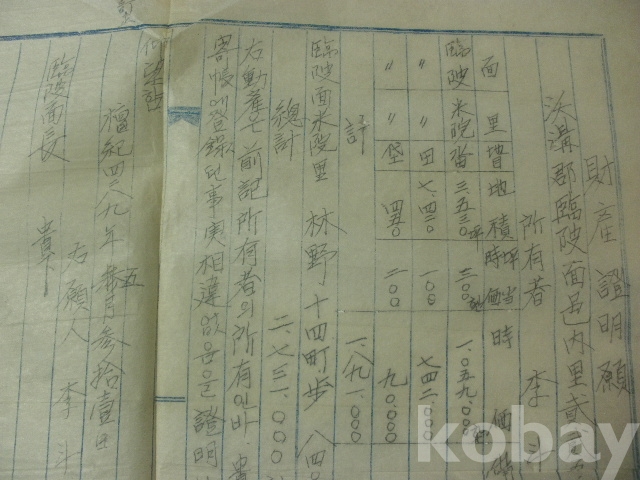 財産證明願
沃溝郡臨陂面邑内里貳
所有者 李斗
面 里 地積 坪当時価 時価
臨陂 米院 畓 三.五三〇坪 三〇〇 一.〇五九.〇〇〇
〃 〃 田 七.四二〇 一〇〇 七四二.〇〇〇
〃 〃 垈 四五〇 二〇〇 九〇.〇〇〇
計 一.八九一.〇〇〇
臨陂面米院里 林野 十四町步 八四〇
總計 二.七三一.〇〇〇
右動産은 前記所有者의 所有인바
帳에 登錄된 事実 相違없음을 證明
檀紀四二八九年 五月 参拾壹日
右願人 李斗
臨陂面長 貴下
kobay